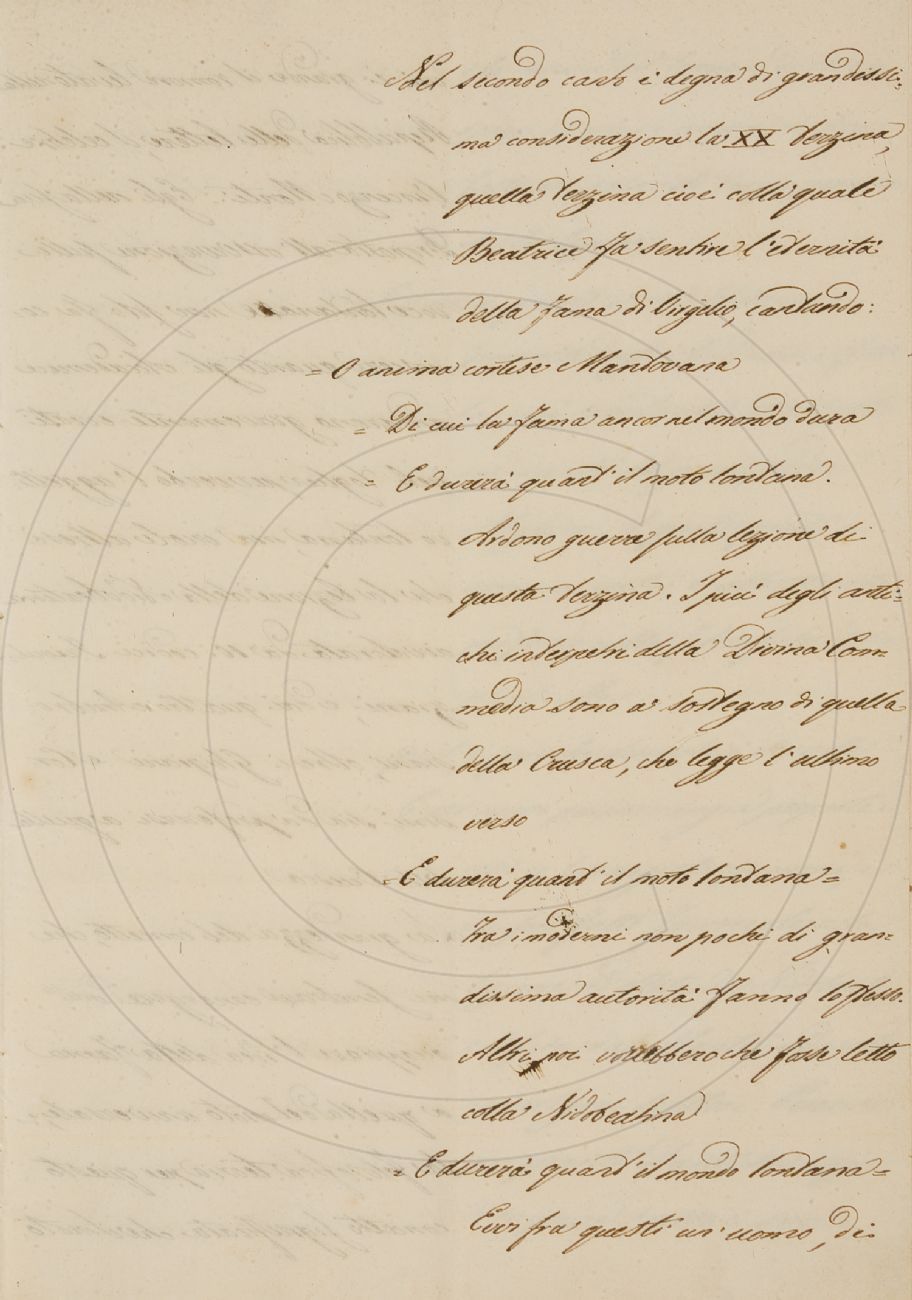 Nel secondo canto è degna di grandissi-
ma considerazione la XX Terzina,
quella Terzina cioè colla quale
Beatrice fa sentire l'eternità
della fama di Virgilio, cantando:
= O anima cortese Mantovana
= Di cui la fama ancor nel mondo dura
= E durerà quant'il moto lontana.
Ardono guerre sulla lezione di
questa Terzina. I più degli anti-
chi interpetri della Divina Com-
media sono a sostegno di quella
della Crusca, che legge l'ultimo
verso
= E durerà quant'il moto lontana =
Tra i moderni non pochi di gran-
dissima autorità fanno lo stesso.
Altri poi vorrebbero che fosse letto
colla Nidobeatina
= E durerà quant'il mondo lontana =
Evvi fra questi un uomo, di